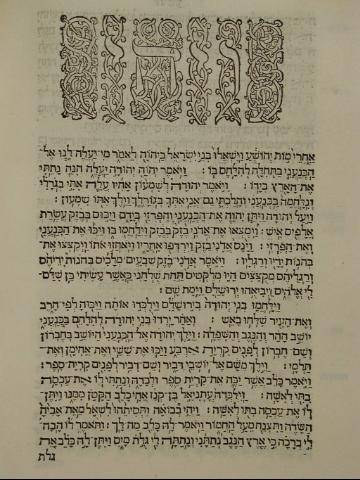 ויהי
אחרי מות יהושע וישאלו בני ישראל ביהוה לאמר מי יעלה לנו אל־
הכנעני בתחלה להלחם בו : ויאמר יהוה יהודה יעלה הנה נתתי
את הארץ בידו : ויאמר יהודה לשמעון אחיו עלה אתי בגרלי
ונלחמה בכנעני והלכתי גם אני אתך בגורלך וילך אתו שמעון :
ויעל יהודה ויתן יהוה את הכנעני והפרזי בידם ויכום בבזק עשרת
אלפים איש : וימצאו את אדני בזק בבזק וילחמו בו ויכו את הכנעני
ואת הפרזי : וינס אדני בזק וירדפו אחריו ויאחזו אותו ויקצצו את
בהנות ידיו ורגליו : ויאמר אדני בזק שבעים מלכים בהנות ידיהם
ורגליהם מקצצים היו מלקטים תחת שלחני כאשר עשיתי כן שלם
לי אלהים ויביאהו ירושלם וימת שם :
וילחמו בני יהודה בירושלם וילכדו אותה ויכוה לפי חרב
ואת העיר שלחו באש : ואחר ירדו בני יהודה להלחם בכנעני
יושב ההר והנגב והשפלה : וילך יהודה אל הכנעני היושב בחברון
ושם חברון לפנים קרית ארבע ויכו את ששי ואת אחימן ואת
תלמי : וילך משם אל יושבי דביר ושם דביר לפנים קרית ספר :
ויאמר כלב אשר יכה את קרית ספר ולכדה ונתתי לו את עכסה
לאשה : וילכדה עתניאל בן קנז אחי כלב הקטן ממנו ויתן
לו את עכסה בתו לאשה : ויהי בבואה ותסיתהו לשאל מאת אביה
השדה ותצנח מעל החמור ויאמר לה כלב מה לך : ותאמר לו הבה
לי ברכה כי ארץ הנגב נתתני ונתתה לי גלת מים ויתן לה כלב את
גלת